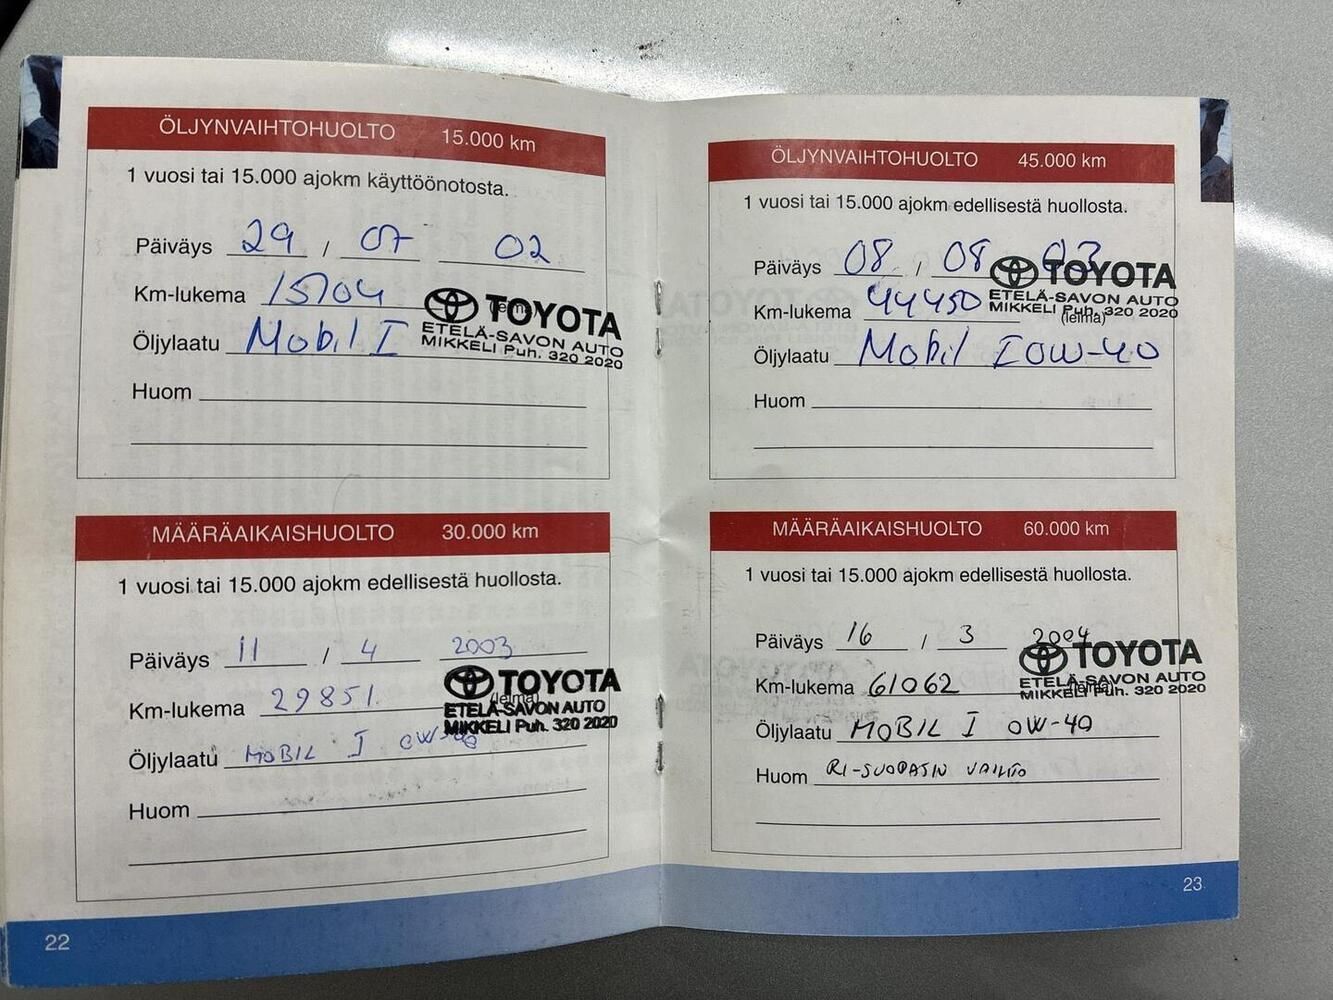 ÖLJYNVAIHTOHUOLTO 15.000 km
1 vuosi tai 15.000 ajokm käyttöönotosta.
Päiväys 29 / 07 02
Km-lukema 15704
(leima)
TOYOTA
ETELÄ-SAVON AUTO
MIKKELI Puh. 320 2020
Öljylaatu Mobil I
Huom
MÄÄRÄAIKAISHUOLTO 30.000 km
1 vuosi tai 15.000 ajokm edellisestä huollosta.
Päiväys 11 / 4 2003
Km-lukema 29851
(leima)
TOYOTA
ETELÄ-SAVON AUTO
MIKKELI Puh. 320 2020
Öljylaatu MOBIL I 0W-40
Huom
22
ÖLJYNVAIHTOHUOLTO 45.000 km
1 vuosi tai 15.000 ajokm edellisestä huollosta.
Päiväys 08 / 08 03
TOYOTA
ETELÄ-SAVON AUTO
MIKKELI Puh. 320 2020
Km-lukema 44450
(leima)
Öljylaatu Mobil I 0W-40
Huom
MÄÄRÄAIKAISHUOLTO 60.000 km
1 vuosi tai 15.000 ajokm edellisestä huollosta.
Päiväys 16 / 3 2004
TOYOTA
ETELÄ-SAVON AUTO
MIKKELI Puh. 320 2020
Km-lukema 61062
(leima)
Öljylaatu MOBIL I 0W-40
Huom RI-SUODATIN VAIHTO
23